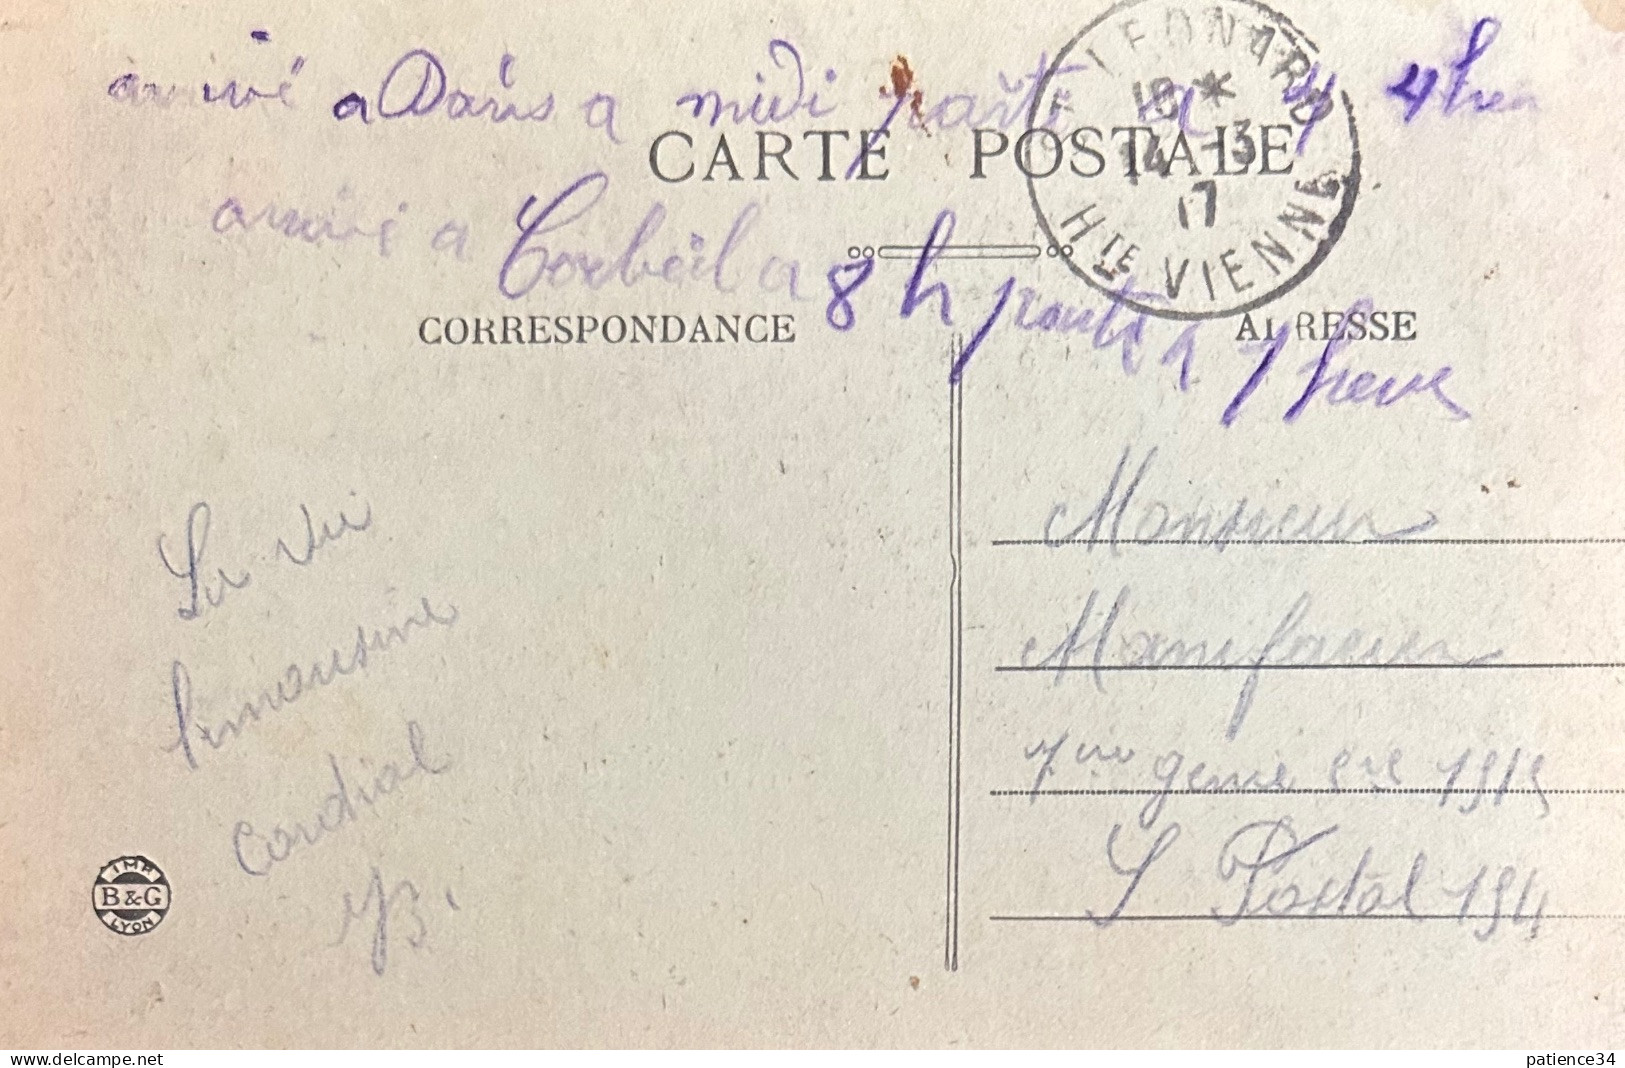 arrivé a Paris a midi parti a 4 4 heu
CARTE POSTALE
LEONARD
18 *
14 -3
17
Hte VIENNE
arrivé a Corbeil a 8 h parti a 7 heure
CORRESPONDANCE
ADRESSE
La vie
limousine
cordial
Monsieur
7me genie 1915
S Postal 194
IMP.
B&G
LYON
www.delcampe.net
patience34